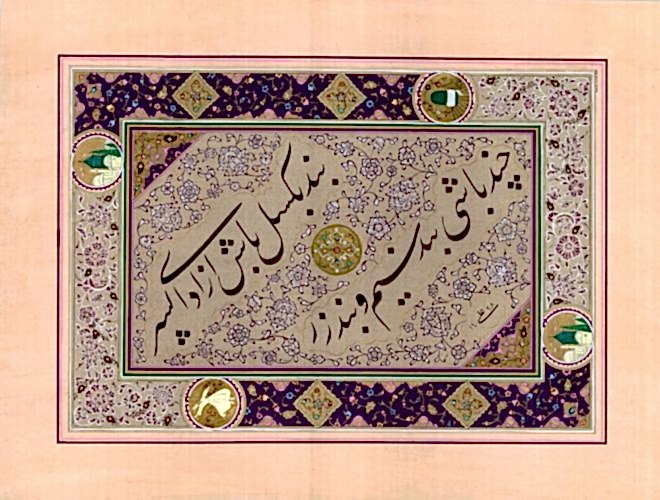 بند بگسل باش ازاد ای پسر
چند باشی بند سیم و بند زر